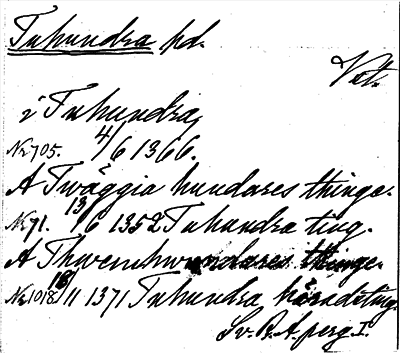 Tuhundra hd.
Vstm.
i Tuhundra,
No 705. 4/6 1366.
A Twäggia hundares thinge.
No 71. 13/6 1352 Tuhundra ting.
A Thwemhwundares thinge.
No 1018 18/11 1371 Tuhundra häradsting.
Sv. R. A. perg. I.